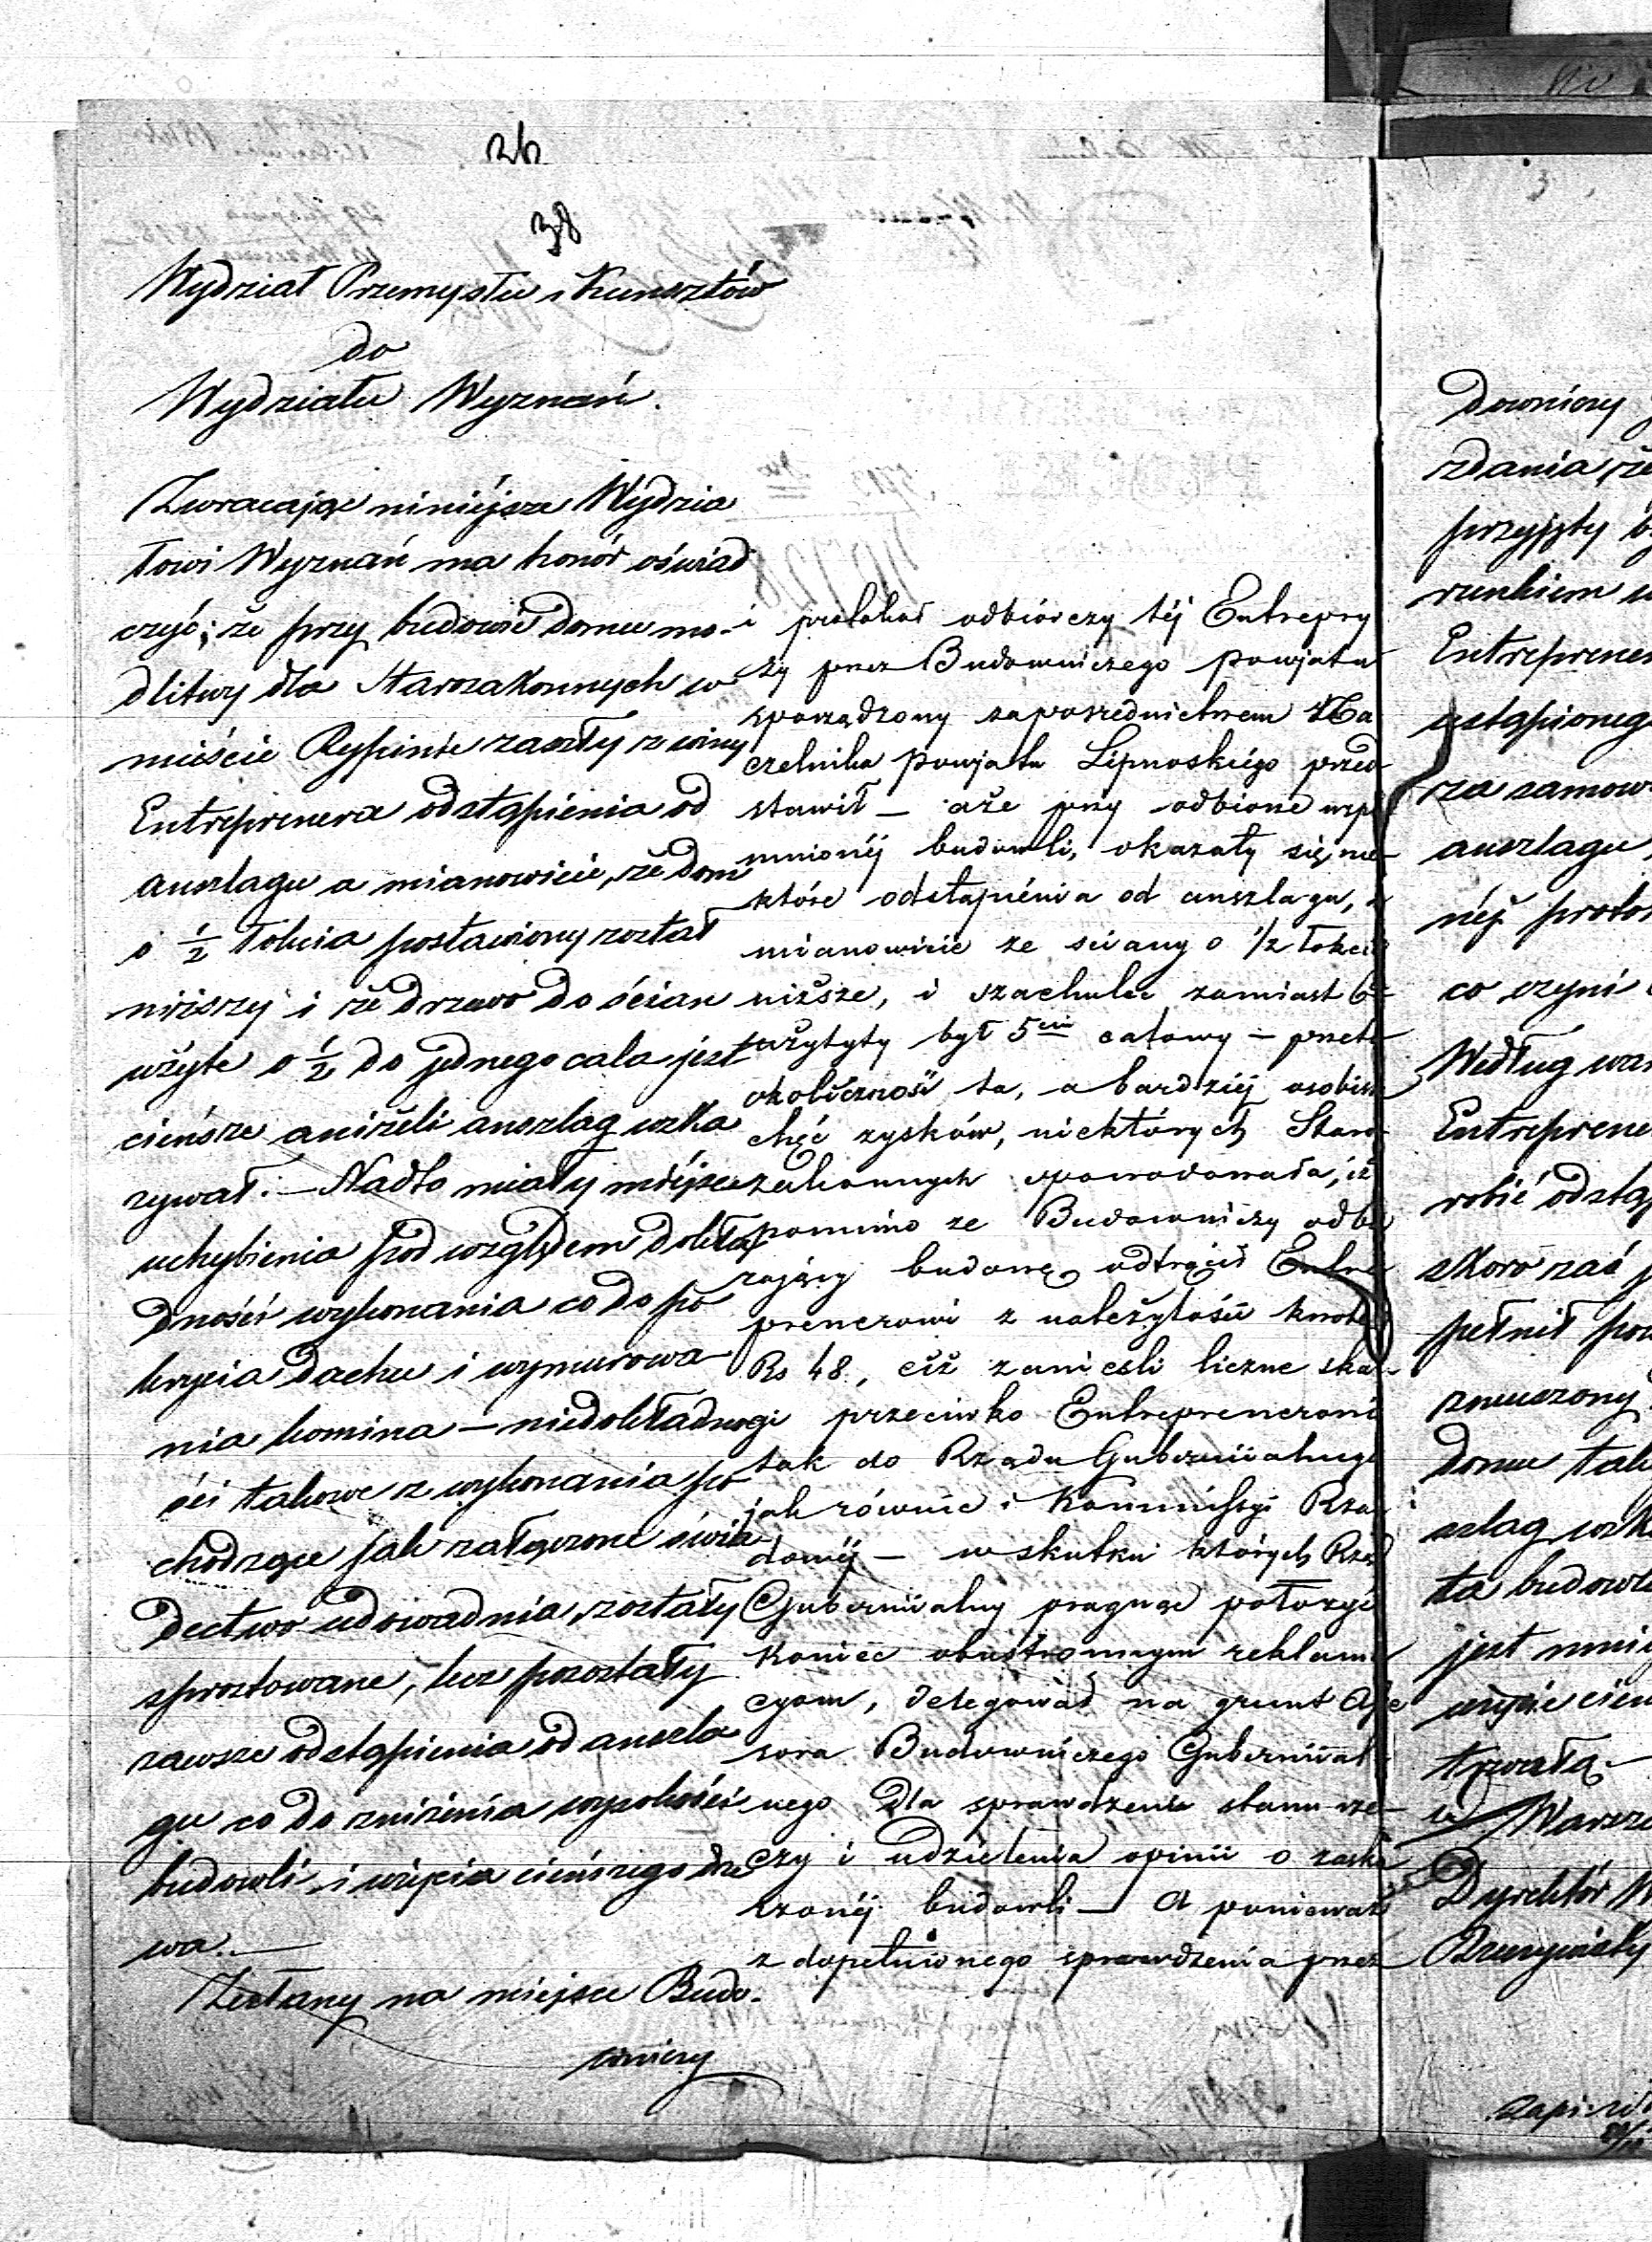 26
38
Wydział Przemysłu i Kunsztów
do
Wydziału Wyznań.
Zwracając niniéjsze Wydzia
łowi Wyznań ma honór oświad
czyć; że przy budowie domu mo-
dlitwy dla Starozakonnych w
mieście Rypinie zaszły z winy
Entreprenera odstąpienia od
anszlagu a mianowicie, że dom
o ½ łokcia postawiony został
niższy i że drzewo do ścian
użyte o ½ do jednego cala jest
cieńsze aniżeli anszlag wska
zywał. — Nadto miały miéjsce
uchybienia pod względem dokła
dności wykonania co do po
krycia dachu i wymurowa
nia komina — niedokładno
ści takowe z wykonania po
chodzące jak załączone świa
dectwo udowadnia, zostały
sprostowane, lecz pozostały
zawsze odstąpienia od anszla
gu co do zniżenia wysokości
budowli i użycia cieńszego drze
wa. —
Zesłany na miejsce Budo-
wniczy
i protokuł odbiórczy téj Entrepry
zy przez Budowniczego Powjatu
sporządzony za pośrednictwem Na
czelnika Powjatu Lipnoskiégo przed
stawił — a że przy odbiorze wspo
mnionéj budowli, okazały się nie-
które odstąpiénia od anszlagu, a
mianowicie ze sciany o 1/2 łokcia
niższe, i szachulec zamiast 6
użytyty był 5cio calowy — przeto
okoliczność ta, a bardziéj osobista
chęć zysków, niektórych Staro
zakonnych spowodowała, iż
pomimo ze Budowniczy odbie
rający budowę odtrącił Entre
prenerowi z należytości kwotę
Rs 48., ciż zanieśli liczne skar-
gi przeciwko Entreprenerowi
tak do Rządu Gubernijalnego
jak równie i Kommissyi Rzą
dowéj — w skutku których Rząd
Gubernialny pragnąc położyć
koniec obustronnym reklama
cyom, delegował na grunt Asse
sora Budowniczego Gubernial
nego dla sprawdzenia stanu rze-
czy i udzielenia opinii o zaska
rzonéj budowli — A ponieważ
z dopełnionego sprawdzenia przez
downiczy
zdania, że
przyjęty
runkiem
Entreprener
ustąpionego
rza samow
anszlagu
néż proto
co czyni
Według war
Entreprene
robić odstąp
skoro zaś
pełnił pow
zmuszony
domu tak
szlag wska
ta budowla
jest mniej
użycie cień
trwałą. —
w Warsza
Dyrektór